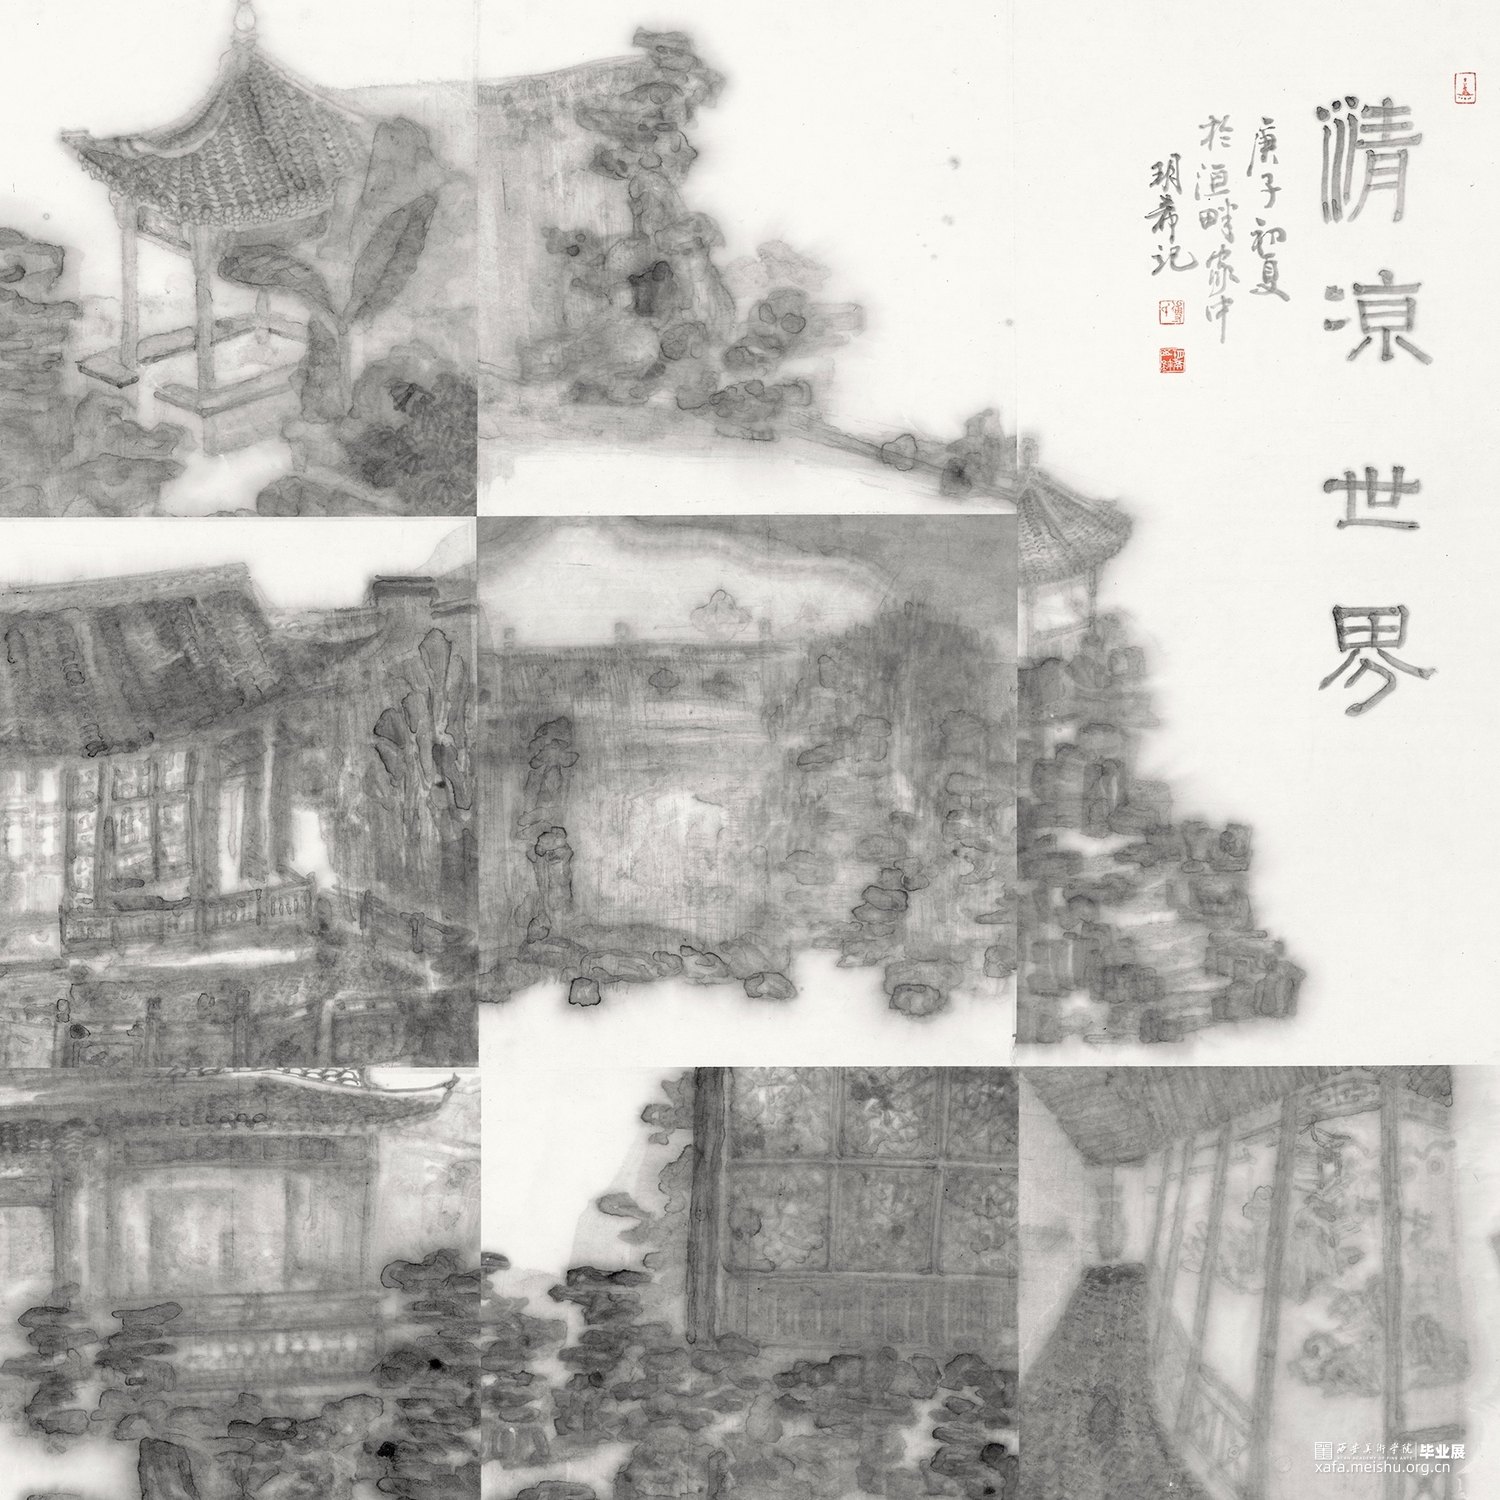 清凉世界
庚子初夏
於洹畔家中
玥希记
西安美术学院 毕业展
XI'AN ACADEMY OF FINE ARTS
xafa.meishu.org.cn